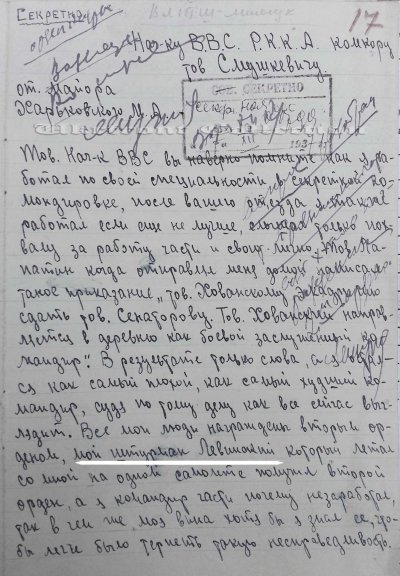 Секретно
17
Нач-ку В.В.С. Р.К.К.А. комкору
тов Смушкевичу
от майора
Харьковского
СОВ. СЕКРЕТНО
193
Тов. Нач-к ВВС вы наверно помните как я ра-
ботал по своей специальности в секретной ко-
мандировке, после вашего отъезда я также
работал если еще не лучше, только пох-
валу за работу части и свою лично. Тов.
патин когда отправлял меня домой написал
такое приказание „тов. Хованскому эскадрилью
сдать тов. Сенаторову. Тов. Хованский направ-
ляется в деревню как боевой заслуженный ко-
мандир". В результате только слова, а я
ся как самый плохой, как самый худший ко-
мандир, судя по тому делу как все сейчас выг-
лядит. Все мои люди награждены вторым ор-
деном, мой штурман Лавинский который летал
со мной на одном самолите получил второй
орден, а я командир части почему незаработал,
так в чем же моя вина хотя бы я знал ее, что-
бы легче было терпеть такую несправедливость.